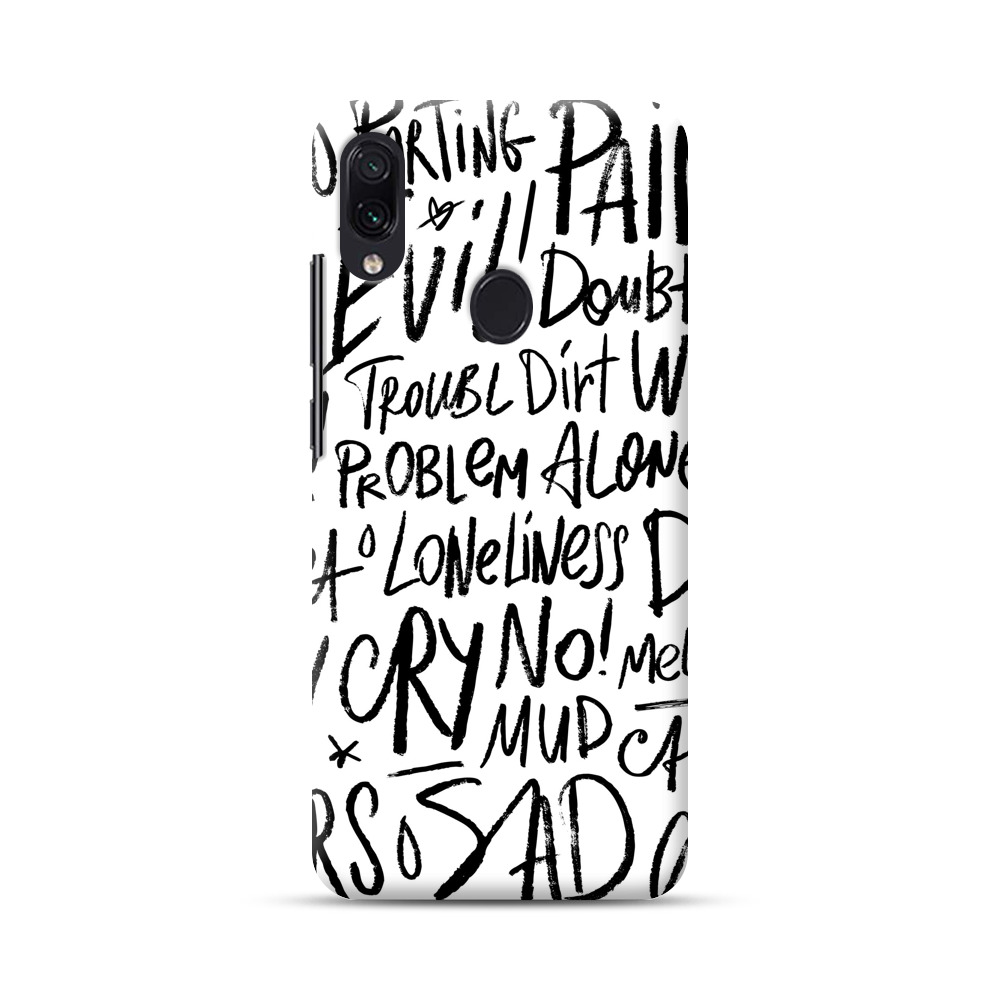 PARTING PAI
Evil Doubt
TROUBL Dirt W
PROBLEM ALONE
LONELINESS D
CRY NO! Mel
MUD CA
RS SAD